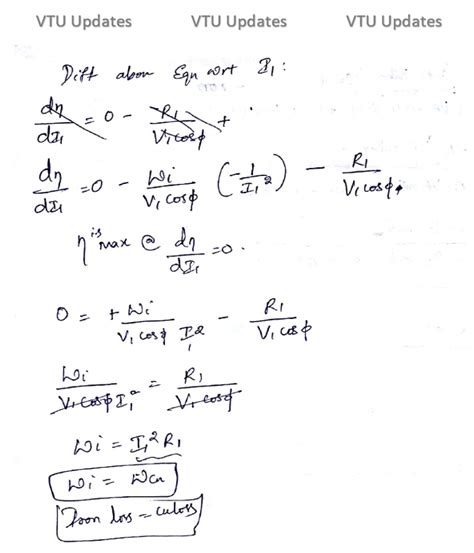 VTU Updates VTU Updates VTU Updates
Diff above Eqn wrt I₁ :
dη/dI₁ = 0 - R₁/V₁cosϕ +
dη/dI₁ = 0 - Wi/V₁cosϕ (-1/I₁²) - R₁/V₁cosϕ.
η is max @ dη/dI₁ = 0.
0 = + Wi/V₁cosϕ I₁² - R₁/V₁cosϕ
Wi/V₁cosϕ I₁² = R₁/V₁cosϕ
Wi = I₁²R₁
Wi = Wcu
Iron loss = culoss